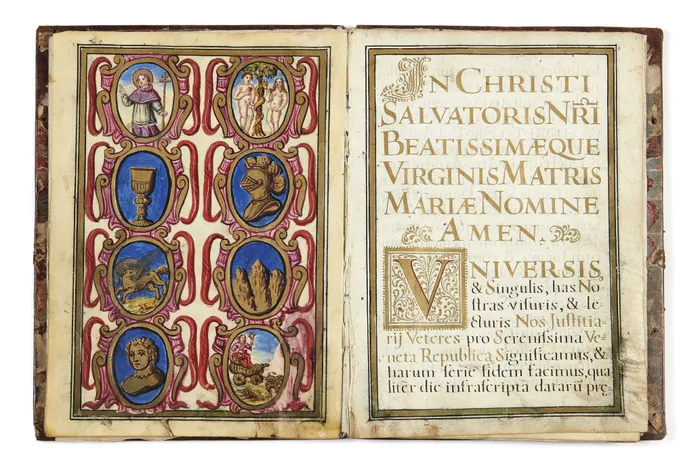 IN CHRISTI
SALVATORIS NRĨ
BEATISSIMÆQUE
VIRGINIS MATRIS
MARIÆ NOMINE
AMEN.
VNIVERSIS,
& Singulis, has No-
stras visuris, & le-
cturis Nos Justitia-
rij Veteres pro Serenissima Ve-
neta Republica Significamus, &
harum serie fidem facimus, qua
liter die infrascripta datarũ prę